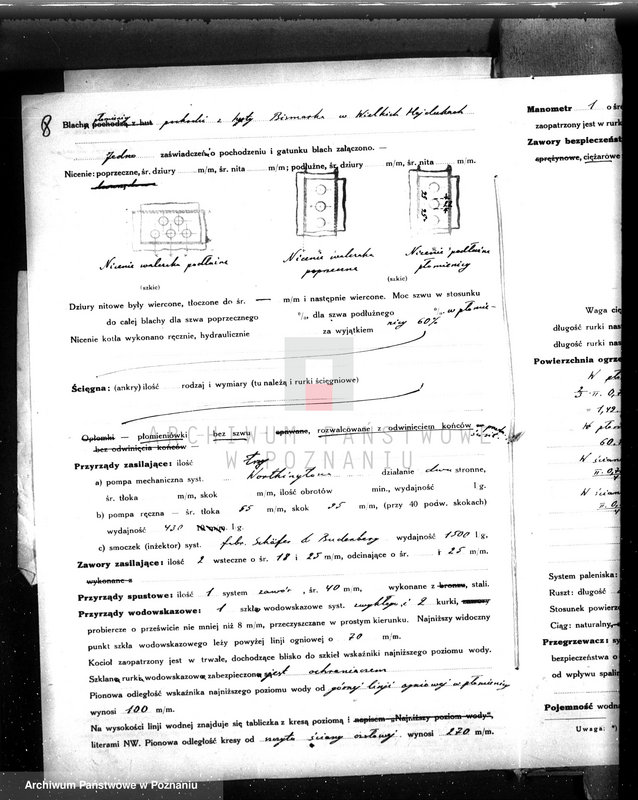 8
płomienicy
Blachą pochodzą z hut pochodzi z huty Bismarka w Wielkich Hajdukach
Jedno zaświadczeń,o pochodzeniu i gatunku blach załączono. —
Nicenie: poprzeczne, śr. dziury m/m, śr. nita m/m; podłużne, śr. dziury m/m, śr. nita m/m.
Nicenie walczaka podłużne
Nicenie walczaka poprzeczne
Nicenie podłużne płomienicy
(szkic)
(szkic)
Dziury nitowe były wiercone, tłoczone do śr. — m/m i następnie wiercone. Moc szwu w stosunku
do całej blachy dla szwa poprzecznego % dla szwa podłużnego % w płomie-
Nicenie kotła wykonano ręcznie, hydraulicznie za wyjątkiem nicy 60%
Ścięgna: (ankry) ilość rodzaj i wymiary (tu należą i rurki ścięgniowe)
Opłomki — płomieniówki bez szwu spawane, rozwalcowane z odwinięciem końców
bez odwinięcia końców
Przyrządy zasilające: ilość trzy
a) pompa mechaniczna syst. Worthingtona działanie dwu stronne,
śr. tłoka m/m, skok m/m, ilość obrotów min., wydajność l g.
b) pompa ręczna — śr. tłoka 65 m/m, skok 25 m/m, (przy 40 podw. skokach)
wydajność 430 l g.
c) smoczek (inżektor) syst. fabr. Schäfer & Budenberg wydajność 1500 l g,
Zawory zasilające: ilość 2 wsteczne o śr. 18 i 25 m/m, odcinające o śr. i 25 m/m.
wykonane z
Przyrządy spustowe: ilość 1 system zawór, śr. 40 m/m, wykonane z bronzu, stali.
Przyrządy wodowskazowe: 1 szkła wodowskazowe syst. zwykłego i 2 kurki,
probiercze o prześwicie nie mniej niż 8 m/m, przeczyszczane w prostym kierunku. Najniższy widoczny
punkt szkła wodowskazowego leży powyżej linji ogniowej o 70 m/m.
Kocioł zaopatrzony jest w trwałe, dochodzące blisko do szkieł wskaźniki najniższego poziomu wody.
Szklana rurka wodowskazowa zabezpieczona jest ochraniaczem
Pionowa odległość wskaźnika najniższego poziomu wody od górnej linji ogniowej w płomienicy
wynosi 100 m/m.
Na wysokości linji wodnej znajduje się tabliczka z kresą poziomą i napisem „Najniższy poziom wody",
literami NW. Pionowa odległość kresy od szczytu ściany czołowej wynosi 270 m/m.
Manometr 1 o śre
zaopatrzony jest w rurk
Zawory bezpieczeńst
sprężynowe, ciężarowe
Waga cię
długość rurki nas
długość rurki nas
Powierzchnia ogrze
W pło
W ścian
W ścian
System paleniska:
Ruszt: długość
Stosunek powierzc
Ciąg: naturalny,
Przegrzewacz: sy
bezpieczeństwa o
od wpływu spalin
Pojemność wodna
Uwaga: *)
ARCHIWUM PAŃSTWOWE
W POZNANIU
Archiwum Państwowe w Poznaniu